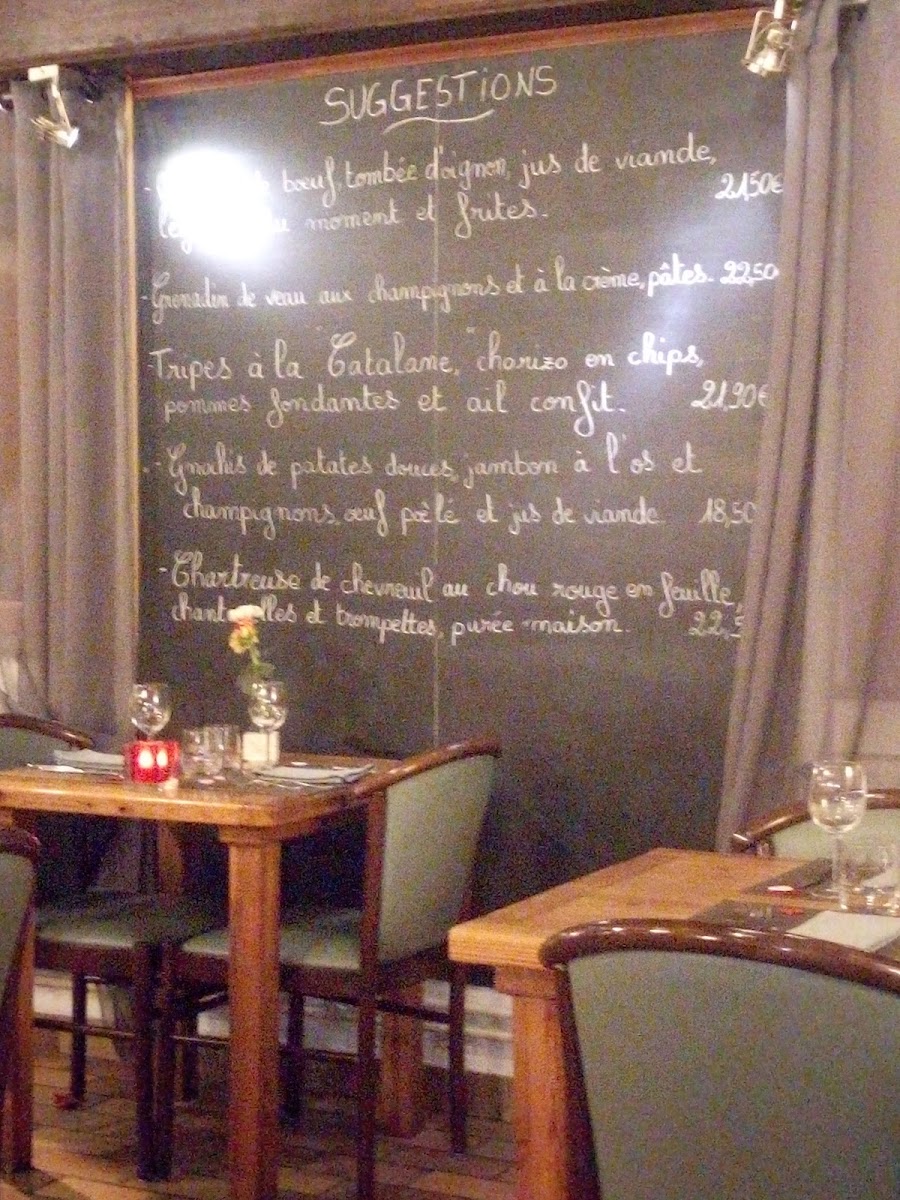 SUGGESTIONS
- bœuf, tombée d'oignon, jus de viande,
moment et frites. 21,50€
- Grenadin de veau aux champignons et à la crème, pâtes. 22,50
- Tripes à la "Catalane," chorizo en chips,
pommes fondantes et ail confit. 21,90€
- Gnochis de patates douces, jambon à l'os et
champignons, œuf poêlé et jus de viande 18,50
- Chartreuse de chevreuil au chou rouge en feuille,
et trompettes, purée maison. 22,5